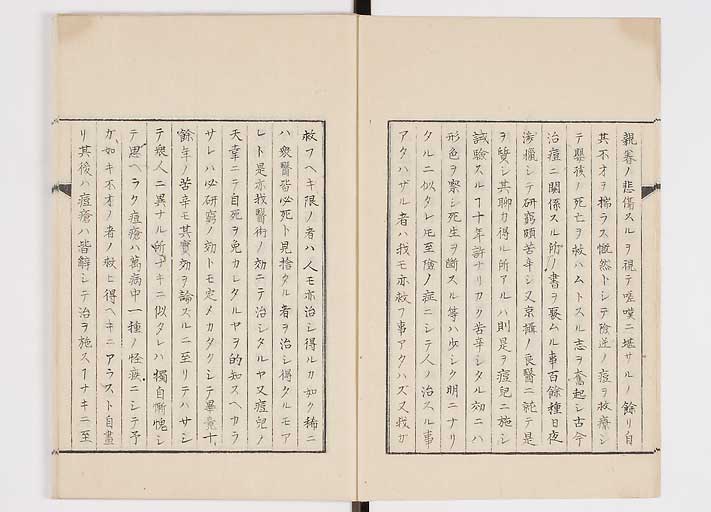 親眷ノ悲傷スルヲ視テ嗟嘆ニ堪サルノ餘リ自
其不才ヲ揣ラス慨然トシテ險逆ノ痘ヲ救療シ
テ嬰孩ノ死亡ヲ救ハムトスル志ヲ奮起シ古今
治痘ニ關係スル所ノ書ヲ聚ムル事百餘種日夜
渉獵シテ研窮頗苦辛シ又京攝ノ良醫ニ就テ是
ヲ質シ其聊カ得ル所アルハ則是ヲ痘兒ニ施シ
試驗スルヿ十年許ナリカク苦辛シタル効ニハ
形色ヲ察シ死生ヲ斷スル等ハ少シク明ニナリ
タルニ似タレ𪜈至險ノ症ニシテ人ノ治スル事
アタハザル者ハ我モ亦救フ事アタハズ又我ガ
救フヘキ限ノ者ハ人モ亦治シ得ルカ如ク稀ニ
ハ衆醫皆必死ト見捨タル者ヲ治シ得タルモア
レト是亦我醫術ノ効ニテ治シタルヤ又痘兒ノ
天幸ニテ自死ヲ免カレタルヤヲ的知スヘカラ
サレハ必研窮ノ効トモ定メカタクシテ畢竟十
餘年ノ苦辛モ其實効ヲ論スルニ至リテハサシ
テ衆人ニ異ナル所ナキニ似タレハ獨自慚愧シ
テ思ヘラク痘瘡ハ萬病中一種ノ怪疾ニシテ予
ガ如キ不才ノ者ノ救ヒ得ヘキニアラスト自畫
リ其後ハ痘瘡ハ皆辭シテ治ヲ施スヿナキニ至